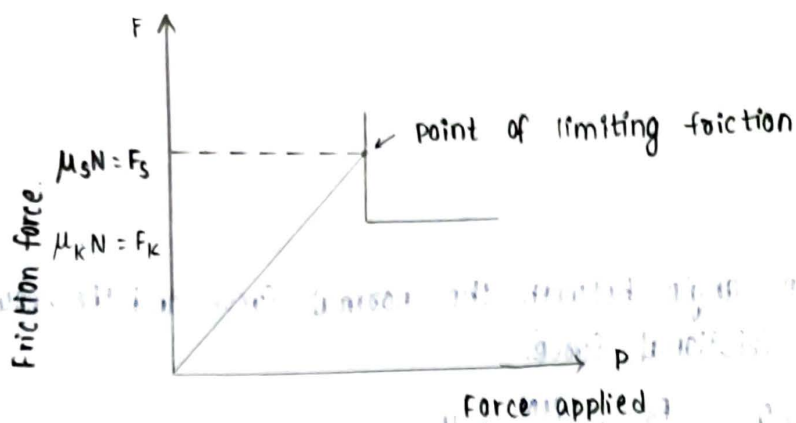 F
point of limiting friction
μsN = Fs
μkN = Fk
Friction force.
P
Force applied